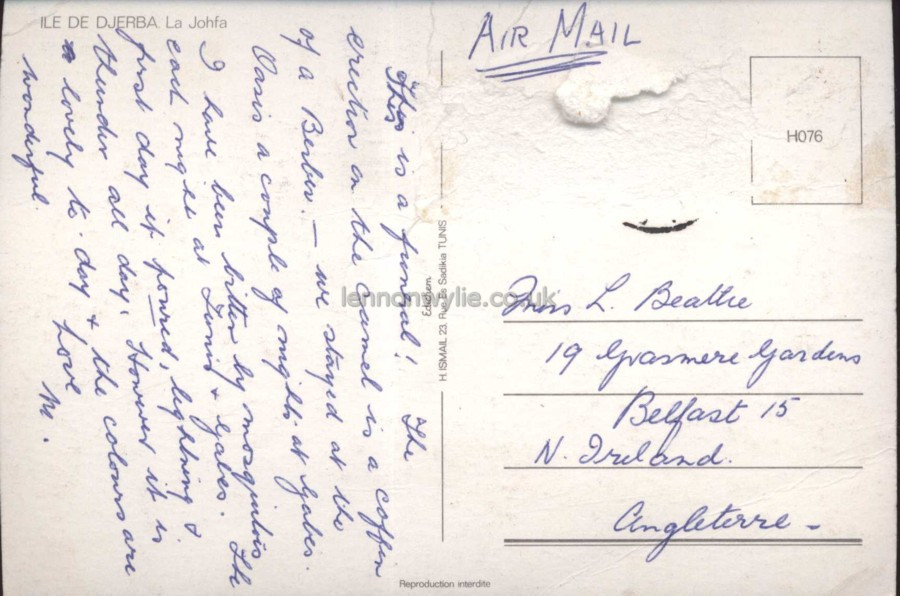 ILE DE DJERBA. La Johfa
This is a funeral! The
erection on the camel is a coffin
of a Berber. — we stayed at the
Oasis a couple of nights at Gabes.
I have been bitten by mosquitois
each night at Tunis & Gabes. The
first day it poured, lightning &
thunder all day. However it is
lovely to-day & the colours are
wonderful. Love
M.
Edichem
H. ISMAIL 23, Rue Es Sadikia TUNIS
AIR MAIL
H076
lennonwylie.co.uk
Miss L. Beattie
19 Grasmere Gardens
Belfast 15
N. Ireland.
Angleterre -
Reproduction interdite